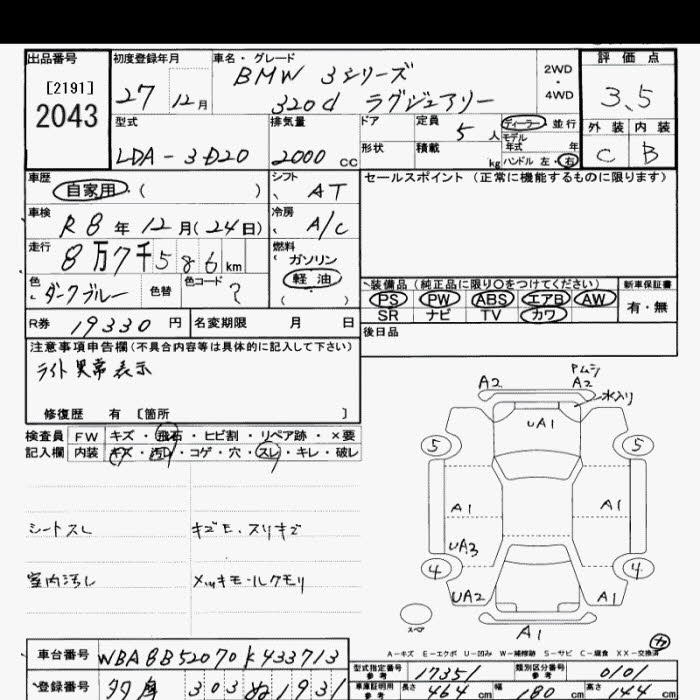 出品番号 初度登録年月 車名・グレード 評価点
[2191] BMW 3シリーズ 2WD
2043 27 12月 320d ラグジュアリー 4WD 3.5
型式 排気量 ドア 定員 5人 ディーラー・並行 外装 内装
モデル年式 年
LDA-3D20 2000cc 形状 積載 kg ハンドル 左・右 C B
車歴 自家用・( ) シフト AT セールスポイント (正常に機能するものに限ります)
車検 R8年12月(24日) 冷房 A/C
走行 8万7千586km 燃料 ガソリン
軽油
( )
色 ダークブルー 色替 色コード ?
装備品(純正品に限り○をつけてください) 新車保証書
PS PW ABS エアB AW 有・無
SR ナビ TV カワ
R券 19330円 名変期限 月 日 後日品
注意事項申告欄(不具合内容等は具体的に記入して下さい)
ライト異常表示
修復歴 有 [箇所 ]
検査員 FW キズ・飛石・ヒビ割・リペア跡・×要
記入欄 内装 キズ・汚れ・コゲ・穴・スレ・キレ・破レ
シートスレ キズE、スリキズ
室内汚レ メッキモールクモリ
Pムシ
A2 A2
水入り
UA1
5 5
A1 A1
UA3
4 4
UA2 A1
スペア
A1
カ
A-キズ E-エクボ U-凹み W-補修跡 S-サビ C-腐食 XX-交換済
車台番号 WBA8B52070K433713
型式指定番号 参考 17351 類別区分番号 参考 0101
登録番号 303 ぬ 1931
車庫証明用 参考 長さ 464cm 幅 180cm 高さ 144cm